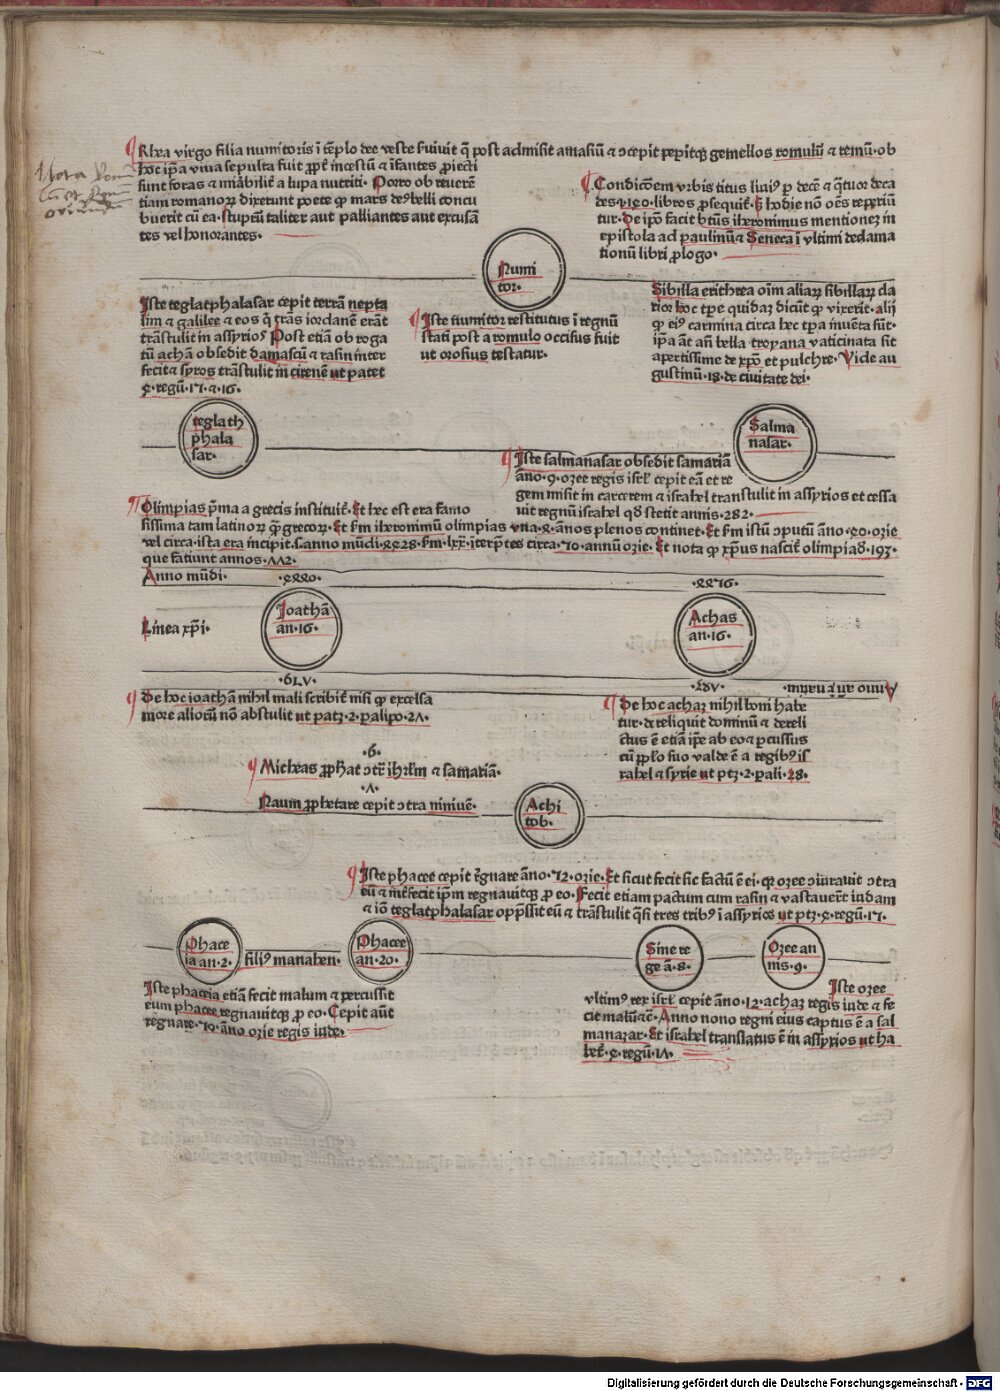 Rhea virgo filia numitoris ī tēplo dee veste ẜuiuit q̄ post admisit amasiū ⁊ ↄcepit peꝑitqꝫ gemellos romulū ⁊ remū· ob
hoc ip̄a viua sepulta fuit ꝓpt̄ incestū ⁊ īfantes ꝓiecti
funt foras ⁊ mirabilit̄ a lupa nutriti· Porro ob reuerē
tiam romanoꝝ dixerunt poete ꝙ mars deꝰ belli concu
buerit cū ea· stupꝝ taliter aut palliantes aut excusā
tes vel honorantes·
Condicōem vrbis titus liuiꝰ ꝑ decē ⁊ q̄tuor deca
des ·140· libros ꝓsequit̄· hodie nō oēs reperiū
tur· De ipō facit btūs iheronimus mentionez in
epistola ad paulinū ⁊ Seneca ī vltimi declama
tionū libri ꝓlogo·
Numi
tor·
Iste teglatphalasar cepit terrā nepta
lim ⁊ galilee ⁊ eos q̄ trās iordanē erāt
trāstulit in assyrios Post etiā ob roga
tū achā obsedit damascū ⁊ rasin inter
fecit ⁊ syros trāstulit in cirenē ut patet
·4· regū·17· ⁊ ·16·
Iste numitor restitutus ī regnū
statī post a romulo occisus fuit
ut orosius testatur·
Sibilla erithrea oīm aliaꝝ sibillaꝝ cla
rior hoc tꝑe quidaꝫ dicūt ꝙ vixerit· alij
ꝙ eiꝰ carmina circa hec tꝑa inuēta sūt·
ip̄a āt añ bella troyana vaticinata sit
apertissime de xp̄o et pulchre· Vide au
gustinū·18· de ciuitate dei·
teglath
phala
sar·
Salma
nasar·
Iste salmanasar obsedit samariā
āno·9· ozee regis isrl̄ cepit eā et re
gem misit in carcerem ⁊ israhel transtulit in assyrios et cessa
uit regnū israhel qd̄ stetit annis·282·
Olimpias p̄ma a grecis instituit̄· Et hec est era famo
sissima tam latinoꝝ q̄ꝫ grecoꝝ· Et ẜm iheronimū olimpias vna ·4· ānos plenos continet· Et ẜm istū ↄputū āno ·40· ozie
vel circa ista era incipit· s· anno mūdi ·4428· ẜm ·lxx· iterp̄tes circa ·70· annū ozie· Et nota ꝙ xp̄us nascit̄ olimpiad̄ 193·
que faciunt annos ·772·
Anno mūdi· ·4440· ·4476·
Linea xp̄i·
Ioathā
an·16·
Achas
an·16·
De hoc ioathā nihil mali scribit̄ nisi ꝙ excelsa
more alioꝝ nō abstulit ut patꝫ ·2· palipo·27·
De hoc achaꝫ nihil boni habe
tur· ⁊ reliquit dominū ⁊ dereli
ctus ē etiā ip̄e ab eo ⁊ ꝑcussus
cū ꝓplo suo valde ē a regibꝰ is
rahel ⁊ syrie ut ptꝫ ·2· pali·28·
·6·
Micheas ꝓphat ↄtr̄ ihrlm̄ ⁊ samariā·
·7·
Naum ꝓphetare cepit ↄtra niniuē·
Achi
tob·
Iste phacee cepit r̄gnare āno ·72· ozie· Et sicut fecit sic factū ē ei· qꝛ ozee ↄiurauit ↄtra
eū ⁊ int̄fecit ip̄m regnauitqꝫ ꝓ eo· Fecit etiam pactum cum rasin ⁊ vastauer̄t iudam
⁊ iō teglatphalasar oppr̄ssit eū ⁊ trāstulit q̄si tres tribꝰ ī assyrios ut ptꝫ ·4· regū·17·
Phace
ia an·2·
filiꝰ manahen·
Phacee
an·20·
Sine re
ge ā·8·
Ozee an
nis·9·
Iste phaceia etiā fecit malum ⁊ percussit
eum phacee regnauitqꝫ ꝓ eo· Cepit aūt
regnare ·70· āno ozie regis iude·
Iste ozee
vltimꝰ rex isrl̄ cepit āno ·12· achaꝫ regis iude ⁊ fe
cit malū ⁊c̄· Anno nono regni eius captus ē a sal
manazar· Et israhel translatus ē in assyrios ut ha
bet̄ ·4· regū·17·
Digitalisierung gefördert durch die Deutsche Forschungsgemeinschaft · DFG